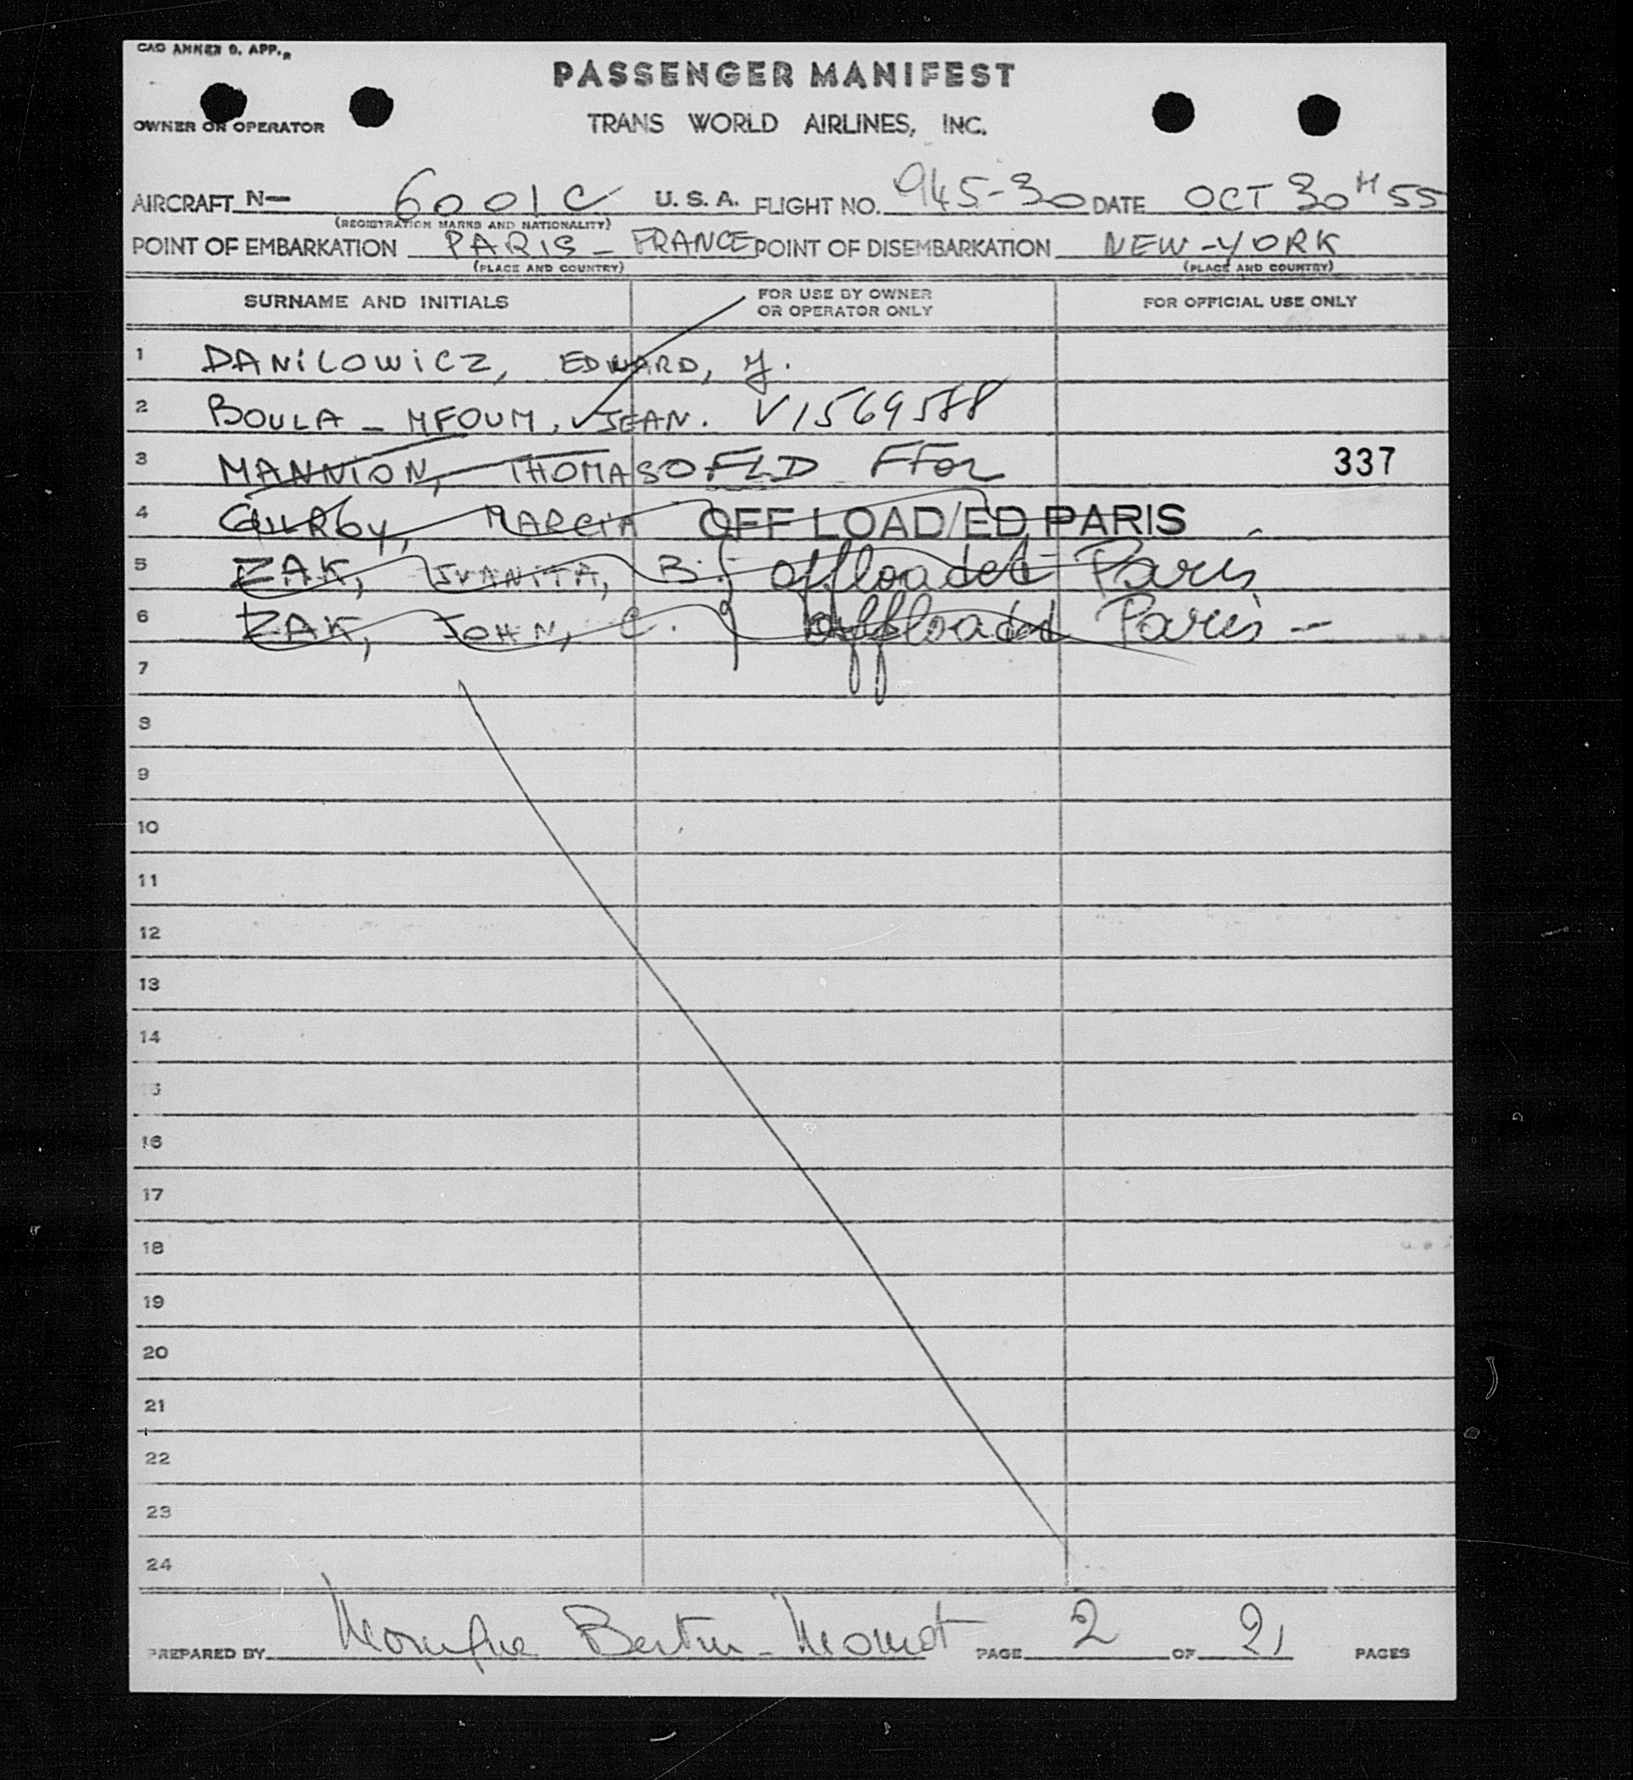 PASSENGER MANIFEST
OWNER OR OPERATOR
TRANS WORLD AIRLINES, INC.
AIRCRAFT N— 6001C U. S. A. FLIGHT NO. 945-30 DATE OCT 30 H 55
(REGISTRATION MARKS AND NATIONALITY)
POINT OF EMBARKATION PARIS - FRANCE POINT OF DISEMBARKATION NEW-YORK
(PLACE AND COUNTRY) (PLACE AND COUNTRY)
SURNAME AND INITIALS FOR USE BY OWNER OR OPERATOR ONLY FOR OFFICIAL USE ONLY
1 DANILOWICZ, EDWARD, Y.
2 BOULA - MFOUM, JEAN. V1569588
3 MANNION, THOMAS OFLD 337
4 MARCIA OFF LOAD/ED PARIS
5 ZAK, JUANITA, B. offloaded Paris
6 ZAK, JOHN, C. offloaded Paris -
7
8
9
10
11
12
13
14
15
16
17
18
19
20
21
22
23
24
PREPARED BY Monique Bertin - PAGE 2 OF 2 PAGES